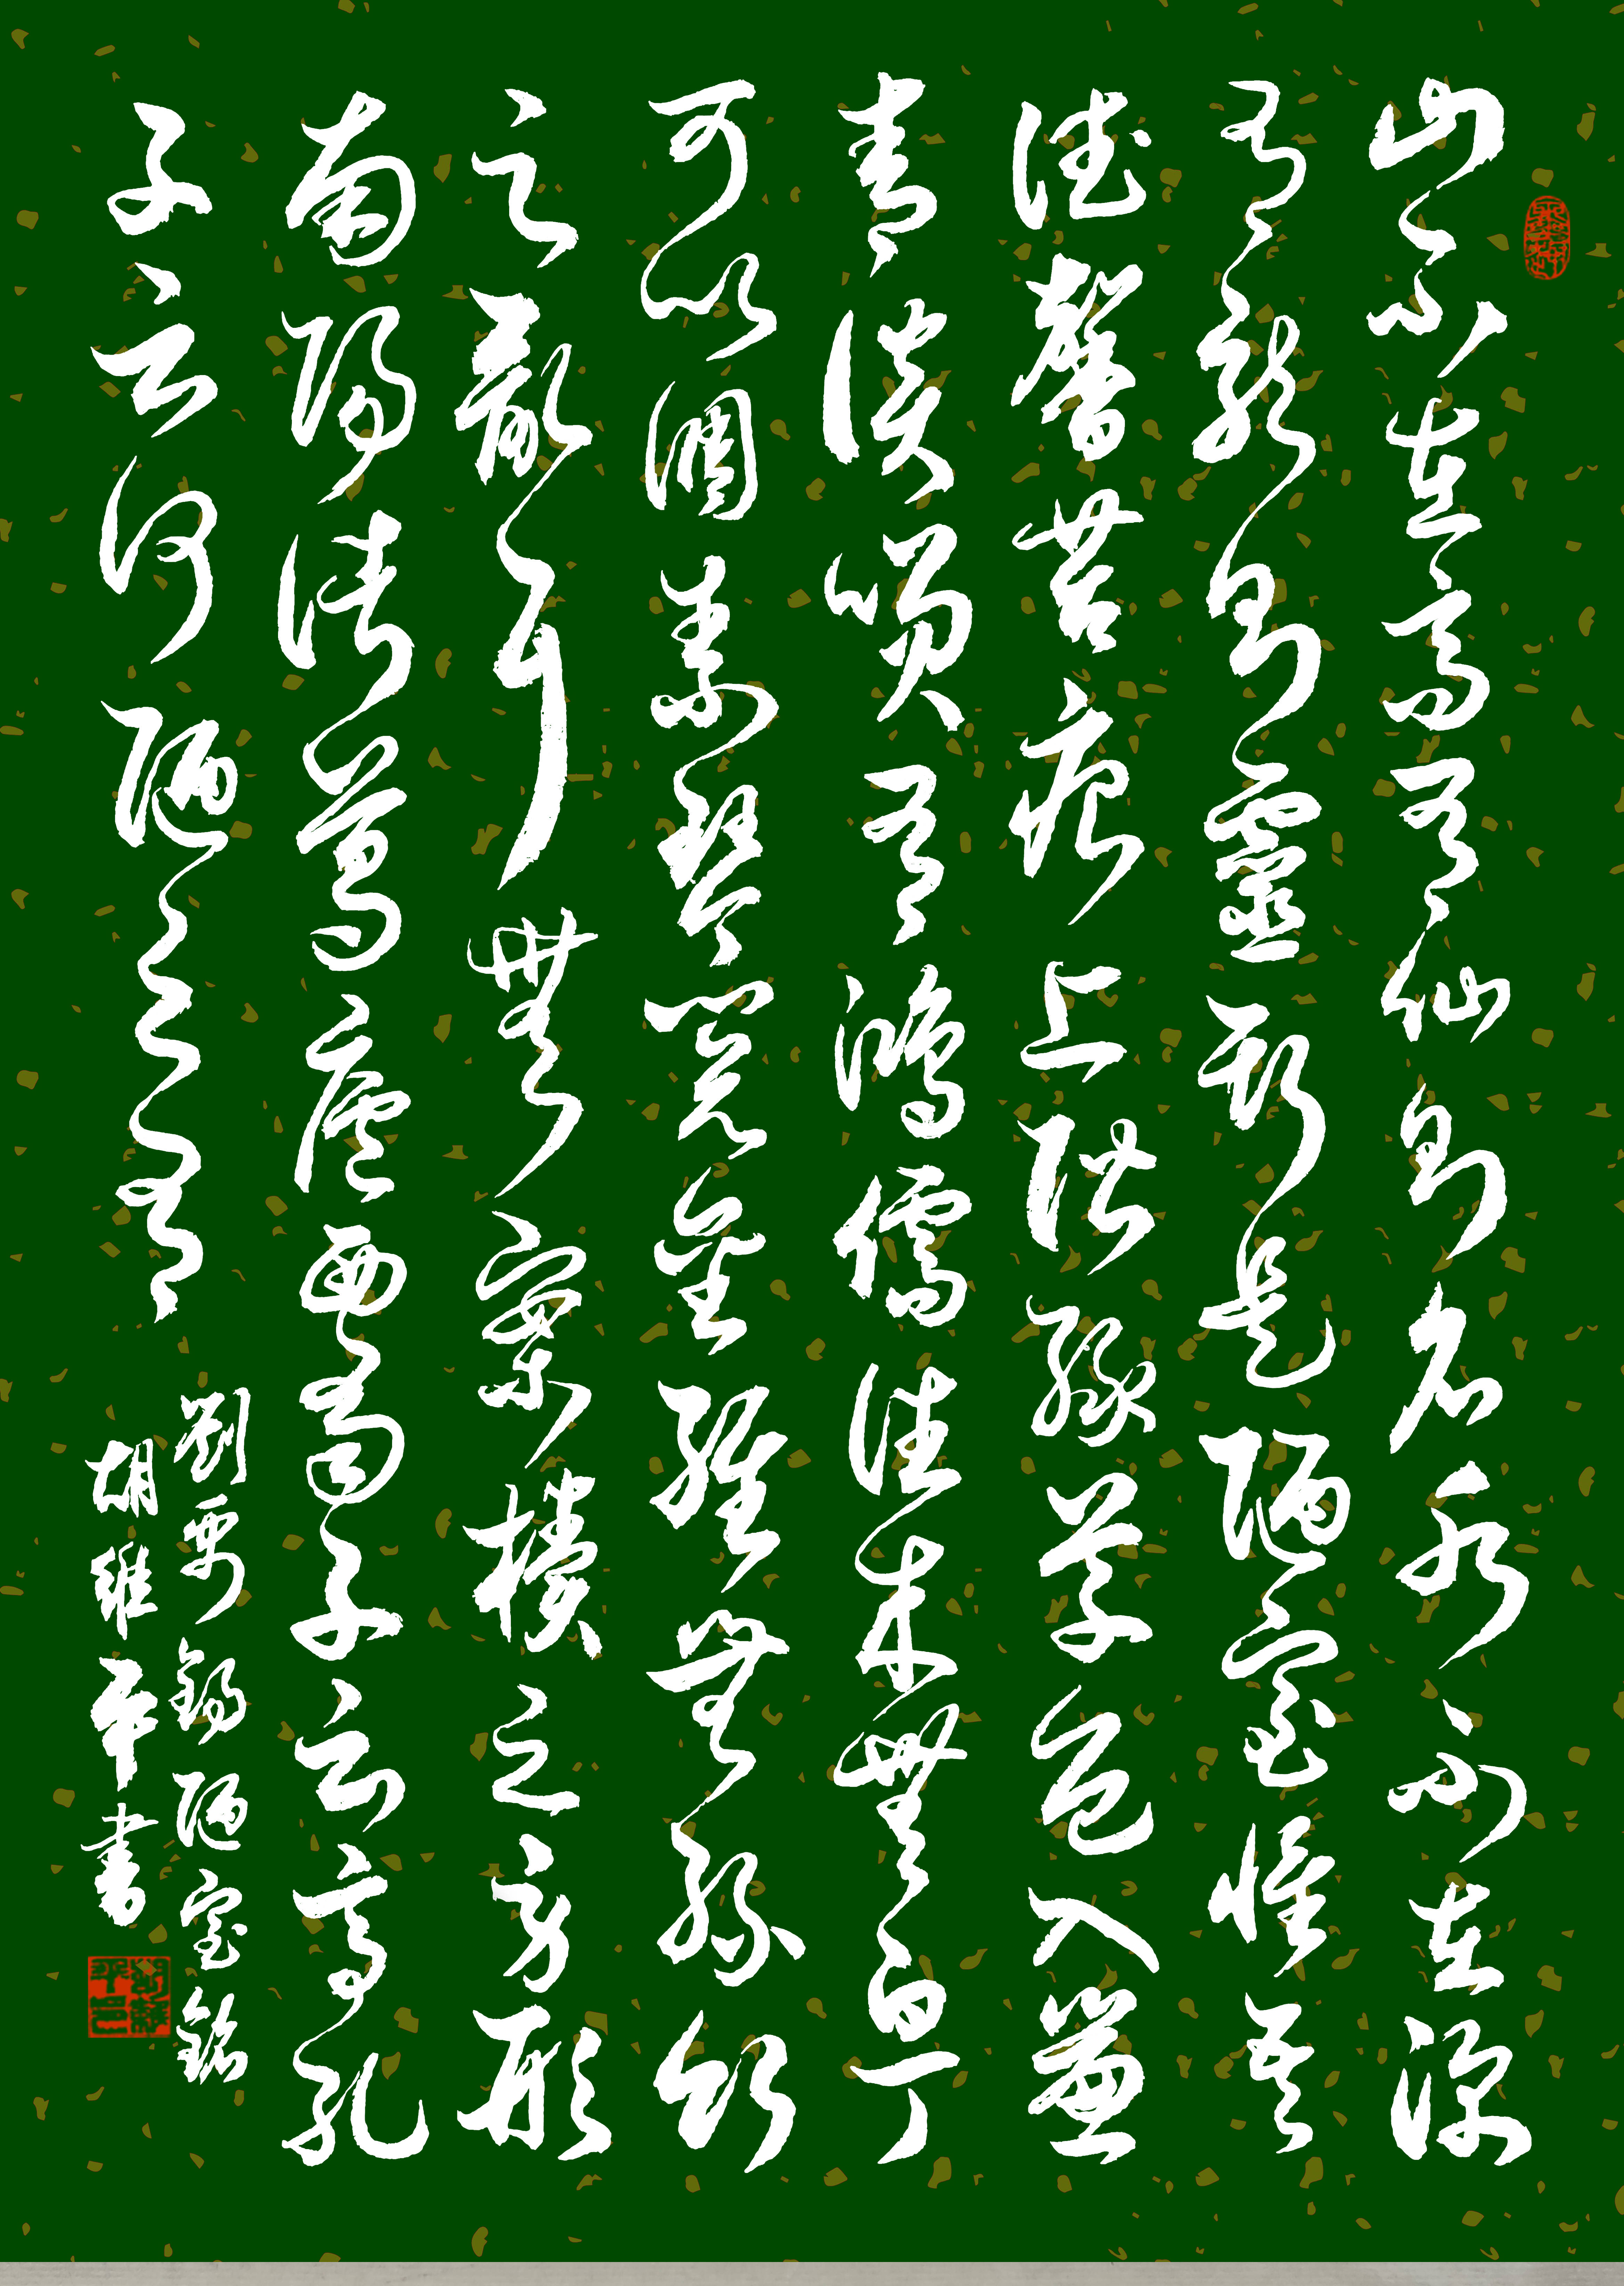 山不在高有仙則名水不在深
有龍則靈斯是陋室惟吾
德馨苔痕上階綠草色入簾
青談笑有鴻儒往來無白丁
可以調素琴閱金經無絲竹
之亂耳無案牘之勞形
南陽諸葛廬西蜀子云亭孔
子云何陋之有
劉禹錫陋室銘
胡維平書